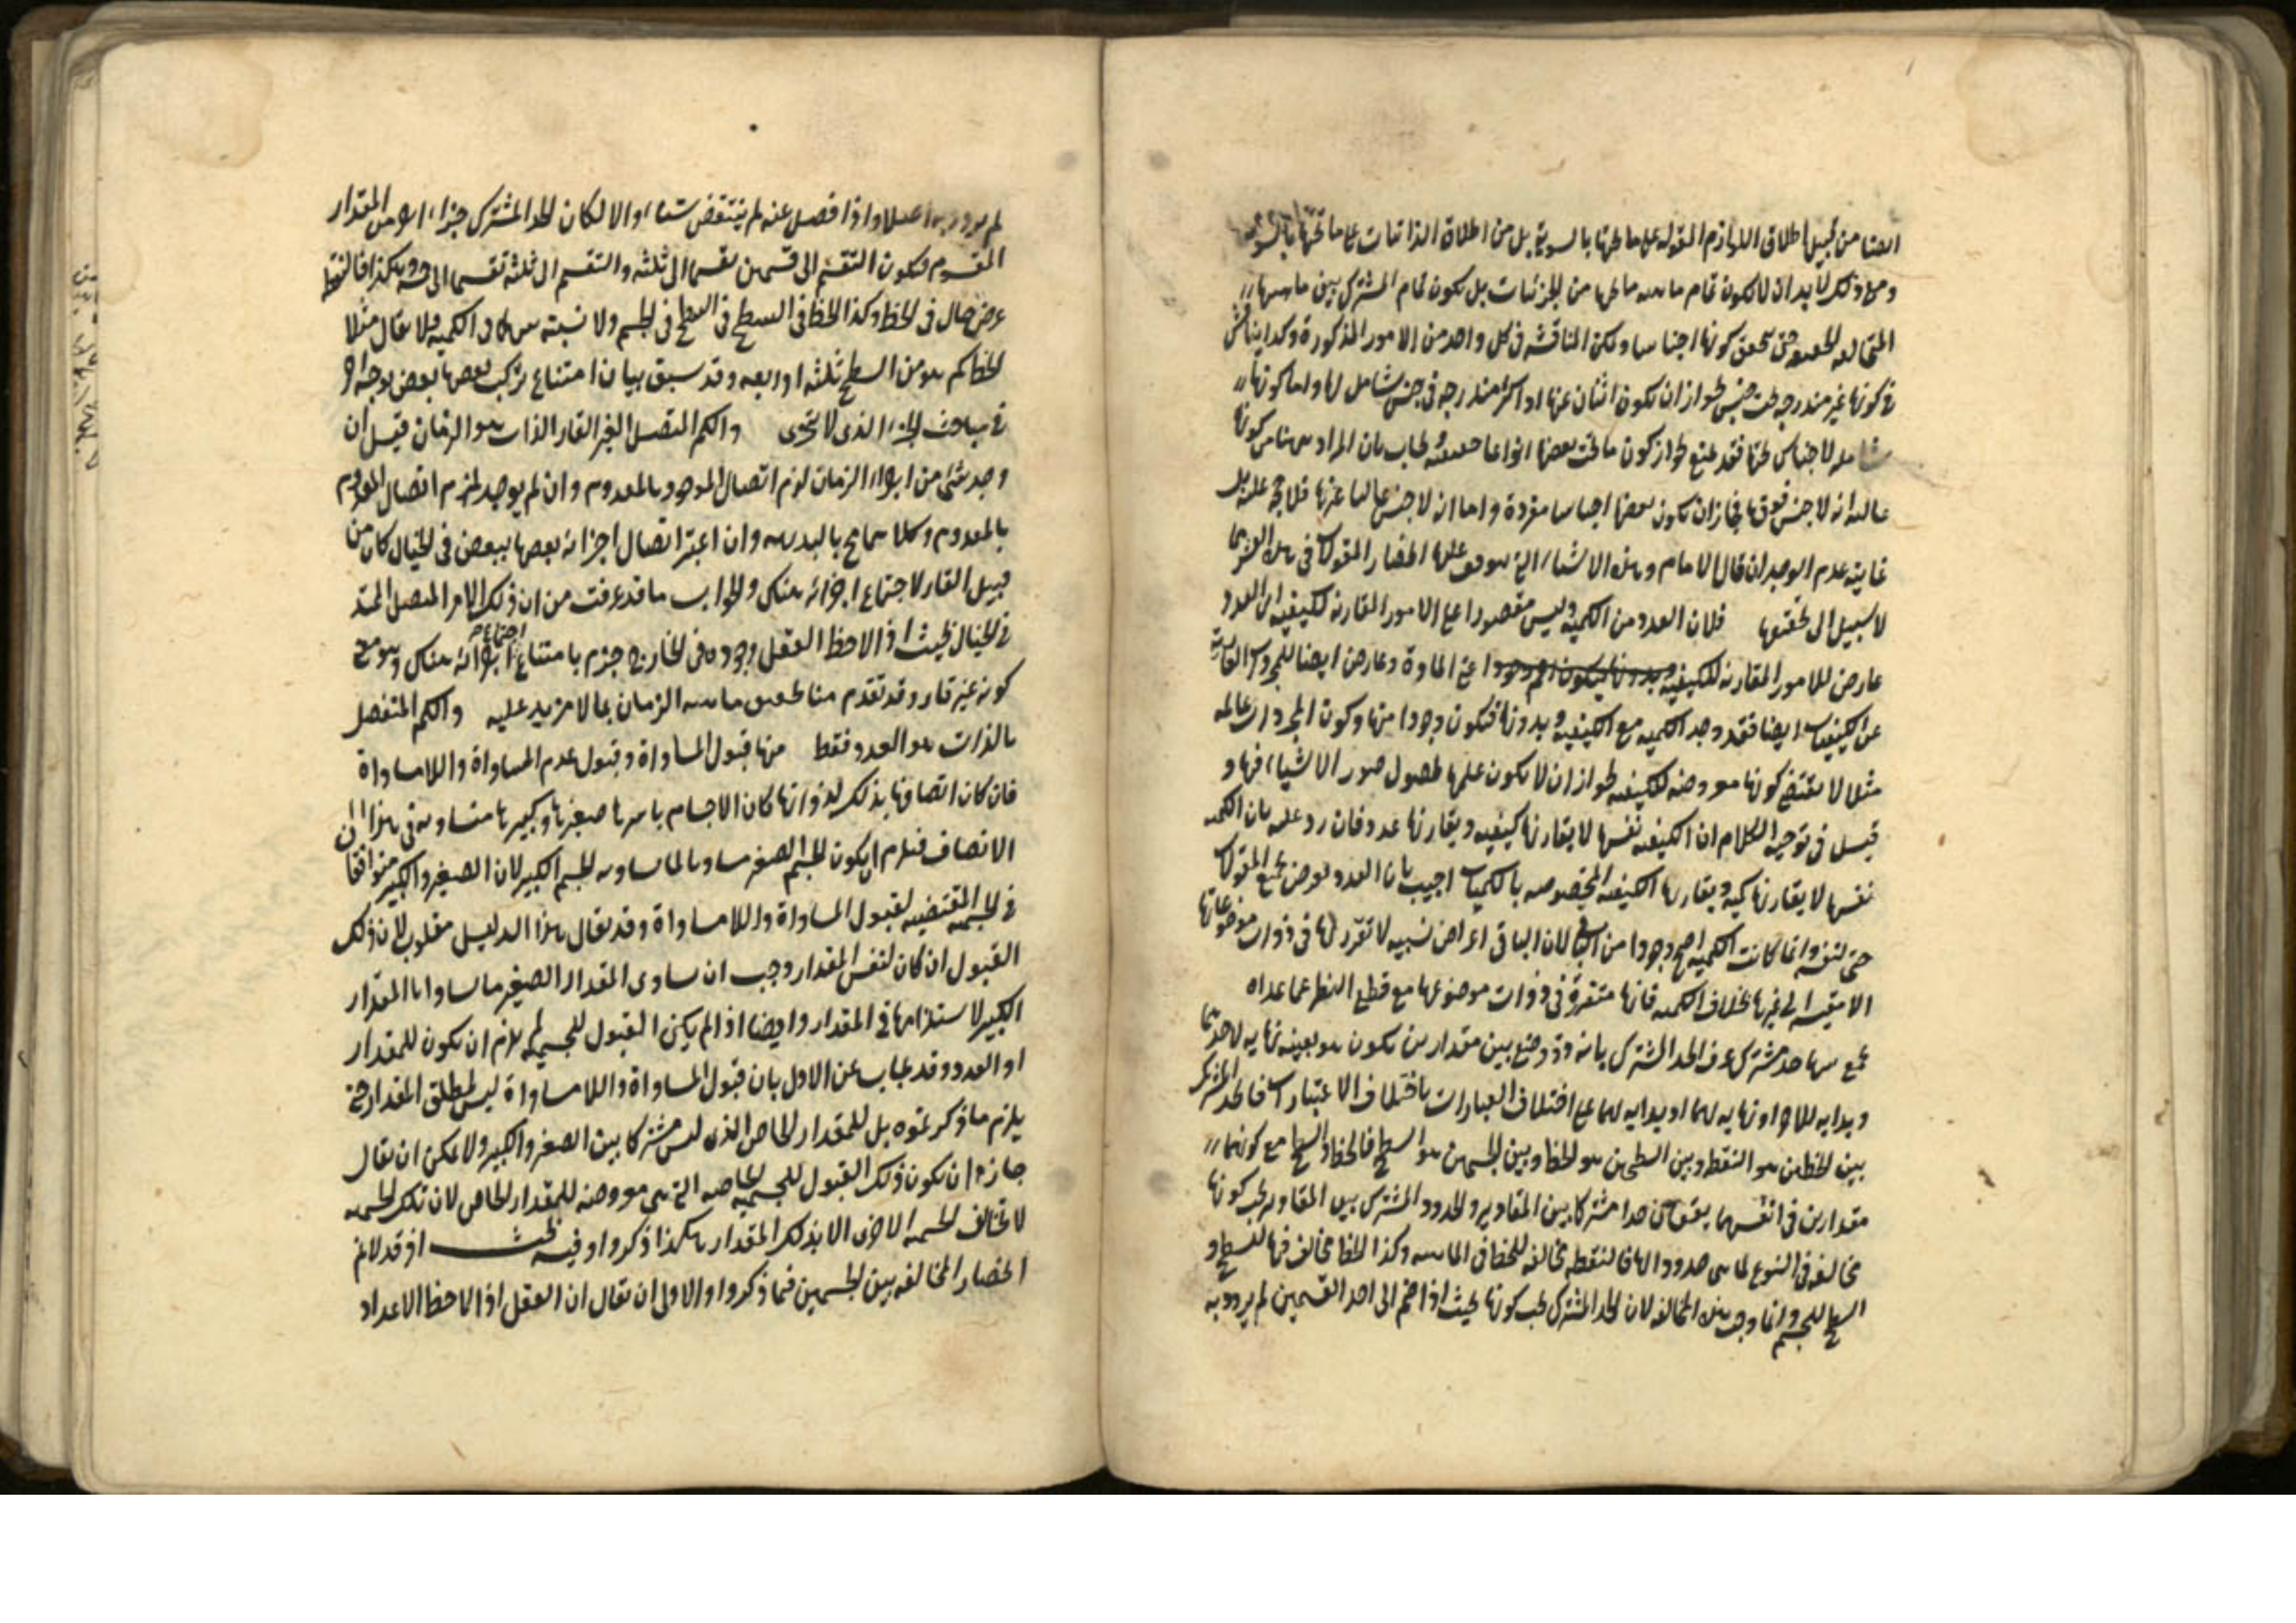 ايضا من قبيل اطلاق اللوازم المقوله على ما تحتها بالسوية بل من اطلاق الذاتيات على ما تحتها بالسويه
ومع ذلك لا بد ان لا تكون تمام ماهيه ما تحتها من الجزئيات بل تكون تمام المشترك بين ماهياتها
المتخالفه الحقيقه حتى تحقق كونها اجناسا ولكن المناقشه فى كل واحد من الامور المذكورة وكذا يناقش
فى كونها غير مندرجه تحت جنس لجواز ان يكون اثنان منها او اكثر مندرجه فى جنس شامل لها واما كونها
شامله لاجناس تحتها فقد يمنع لجواز كون ما تحت بعضها انواعا حقيقيه يجاب بان المراد من كونها
عاليه انه لا جنس فوقها فجاز ان يكون بعضها اجناسا مفردة واما انه لا جنس عاليا غيرها فلا حجه عليه بل
غايته عدم الوجدان قال الامام وهذه الاشياء التى يتوقف عليها انحصار المقولات فى هذه العشر مما
لا سبيل الى تحقيقها فلان العدد من الكميه وليس مقصورا على الامور المقارنه للكيفيه اذ العدد
عارض للامور المقارنه للكيفيه اعنى المادة وعارض ايضا للمجردات العاريه
عن الكيفيات ايضا فقد وجد الكميه مع الكيفيه وبدونها فيكون وجودا منها وكون المجردات عالمه
مثلا لا يقتضى كونها معروضه للكيفيه لجواز ان لا يكون علمها بحصول صور الاشياء فيها و
قيل فى توجيه الكلام ان الكيفيه نفسها لا يقارنها كيفيه ويقارنها عدد فان رد عليه بان الكميه
نفسها لا يقارنها كميه ويقارنها الكيفيه المختصه بالكميات اجيب بان العدد يعرض جميع المقولات
حتى لنفسه وانما كانت الكميه اصح وجودا من الباقى لان الباقى اعراض نسبيه لا تقرر لها فى ذوات موضوعاتها
الا مقيسه الى غيرها بخلاف الكميه فانها متقررة فى ذوات موضوعها مع قطع النظر عما عداه
حد مشترك عرف الحد المشترك بانه ذو وضع بين مقدارين يكون هو بعينه نهايه لاحدهما
وبدايه للاخر او نهايه لهما او بدايه لهما على اختلاف العبارات باختلاف الاعتبارات فالحد المشترك
بين الخطين هو النقطه وبين السطحين هو الخط وبين الجسمين هو السطح فالخط والسطح مع كونهما
مقدارين فى انفسهما يقعان حدا مشتركا بين المقادير والحدود المشتركه بين المقادير يجب كونها
مخالفه فى النوع لما هى حدود له فان النقطه مخالفه للخط فى الماهيه وكذا الخط مخالف فيها للسطح و
السطح للجسم وانما وجب هذه المخالفه لان الحد المشترك يجب كونها بحيث اذا ضم الى احد القسمين لم يزدد به
لم يزدد به اصلا واذا فصل عنه لم ينتقض شيئا والا لكان الحد المشترك جزءا اخر من المقدار
المقسوم فيكون التقسيم الى قسمين تقسيما الى ثلثه والتقسيم الى ثلثه تقسيما الى خمسه وهكذا فالنقطه
عرض حال فى الخط وكذا الخط فى السطح والسطح فى الجسم ولا نسبته فى الكميه فلا يقال مثلا
الخط كم هو من السطح ثلثه او اربعه وقد سبق بيان امتناع تركب بعضها بعض بوجه اخر
فى مباحث الجزء الذى لا يتجزى والكم المتصل الغير القار الذات هو الزمان قيل ان
وجد شىء من اجزاء الزمان لزم اتصال الموجود بالمعدوم وان لم يوجد لزم اتصال المعدوم
بالمعدوم وكلاهما محال بالبديهه وان اعتبر اتصال اجزائه بعضها ببعض فى الخيال كان من
قبيل القار لاجتماع اجزائه هناك والجواب ما قد عرفت من ان ذلك الامر المتصل الممتد
فى الخيال بحيث اذا لاحظ العقل وجوده فى الخارج جزم بامتناع اجتماع اجزائه هناك وهو معنى
كونه غير قار وقد تقدم منا تحقيق ماهيه الزمان بما لا مزيد عليه والكم المنفصل
بالذات هو العدد فقط منها قبول المساواة وقبول عدم المساواة واللامساواة
فان كان اتصافها بذلك لذواتها كان الاجسام باسرها صغيرها وكبيرها متساويه فى هذا
الاتصاف فيلزم ان يكون الجسم الصغير مساويا لما يساويه الجسم الكبير لان الصغير والكبير متوافقان
فى الجسميه المقتضيه لقبول المساواة واللامساواة وقد يقال هذا الدليل مقلوب لان ذلك
القبول ان كان لنفس المقدار وجب ان يساوى المقدار الصغير ما يساواه المقدار
الكبير لاستلزامها فى المقدار وايضا اذا لم يكن القبول للجسميه لم يلزم ان يكون للمقدار
او العدد وقد يجاب عن الاول بان قبول المساواة واللامساواة ليس لمطلق المقدار حتى
يلزم ما ذكرتموه بل للمقدار الخاص الذى ليس مشتركا بين الصغير والكبير ولا يمكن ان يقال
جاز ان يكون ذلك القبول للجسميه الخاصه التى هى معروضه للمقدار الخاص لان تلك الجسميه
لا تخالف الجسميه الاخرى الا بذلك المقدار هكذا ذكروا وفيه بحث اذ قد لا تم
انحصار المخالفه بين الجسمين فيما ذكروا والاولى ان يقال ان العقل اذا لاحظ الاعداد